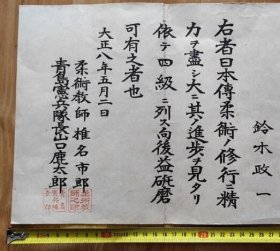 鈴木政一
右者日本傳柔術ノ修行ニ精
力ヲ盡シ大ニ其ノ進歩ヲ見タリ
依テ四級ニ列ス向後益砥磨
可有之者也
大正八年五月二日
柔術教師椎名市郎
青島憲兵隊長山口鹿太郎